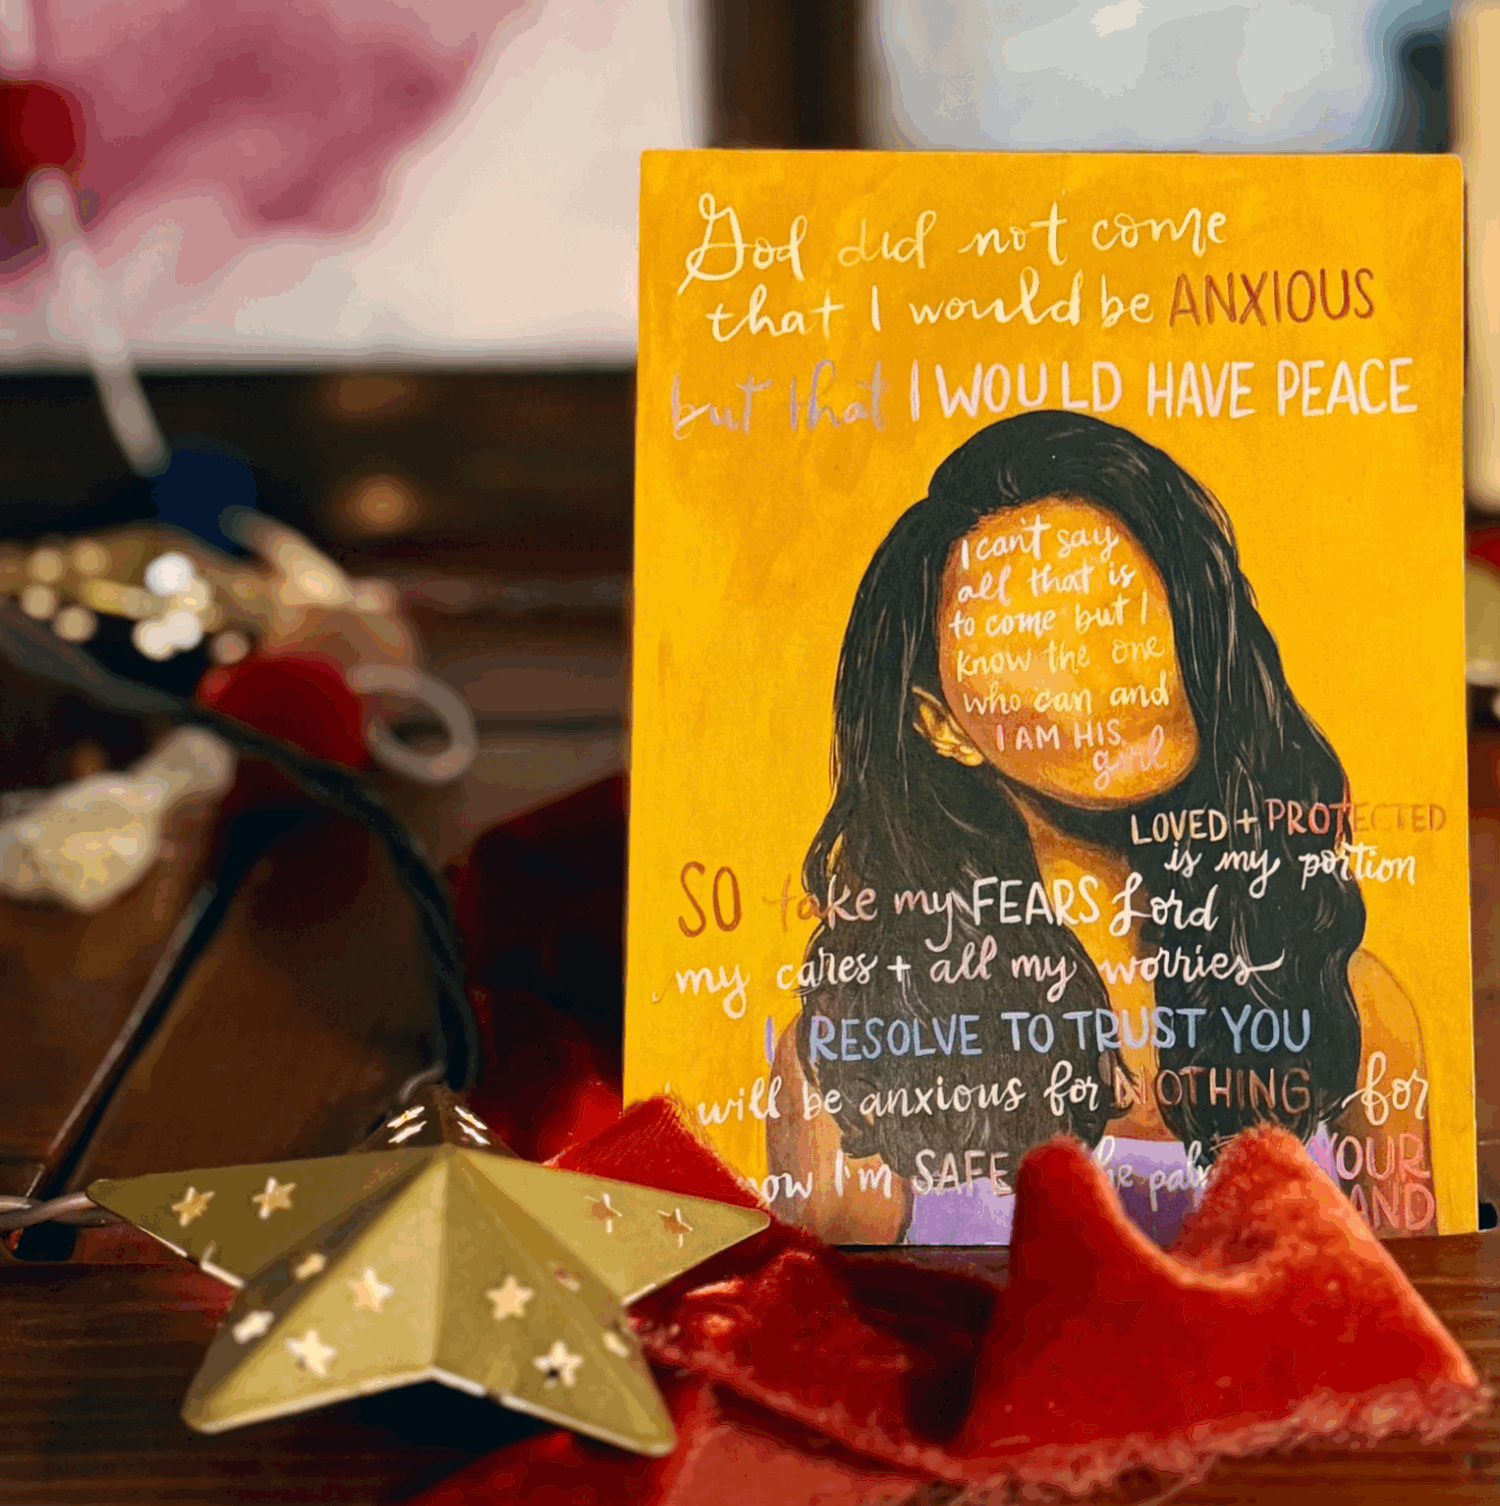 God did not come
that I would be ANXIOUS
but that I WOULD HAVE PEACE
I can't say
all that is
to come but I
know the one
who can and
I AM HIS
girl
LOVED + PROTECTED
is my portion
SO take my FEARS Lord
my cares + all my worries
I RESOLVE TO TRUST YOU
will be anxious for NOTHING for
I'm SAFE YOUR